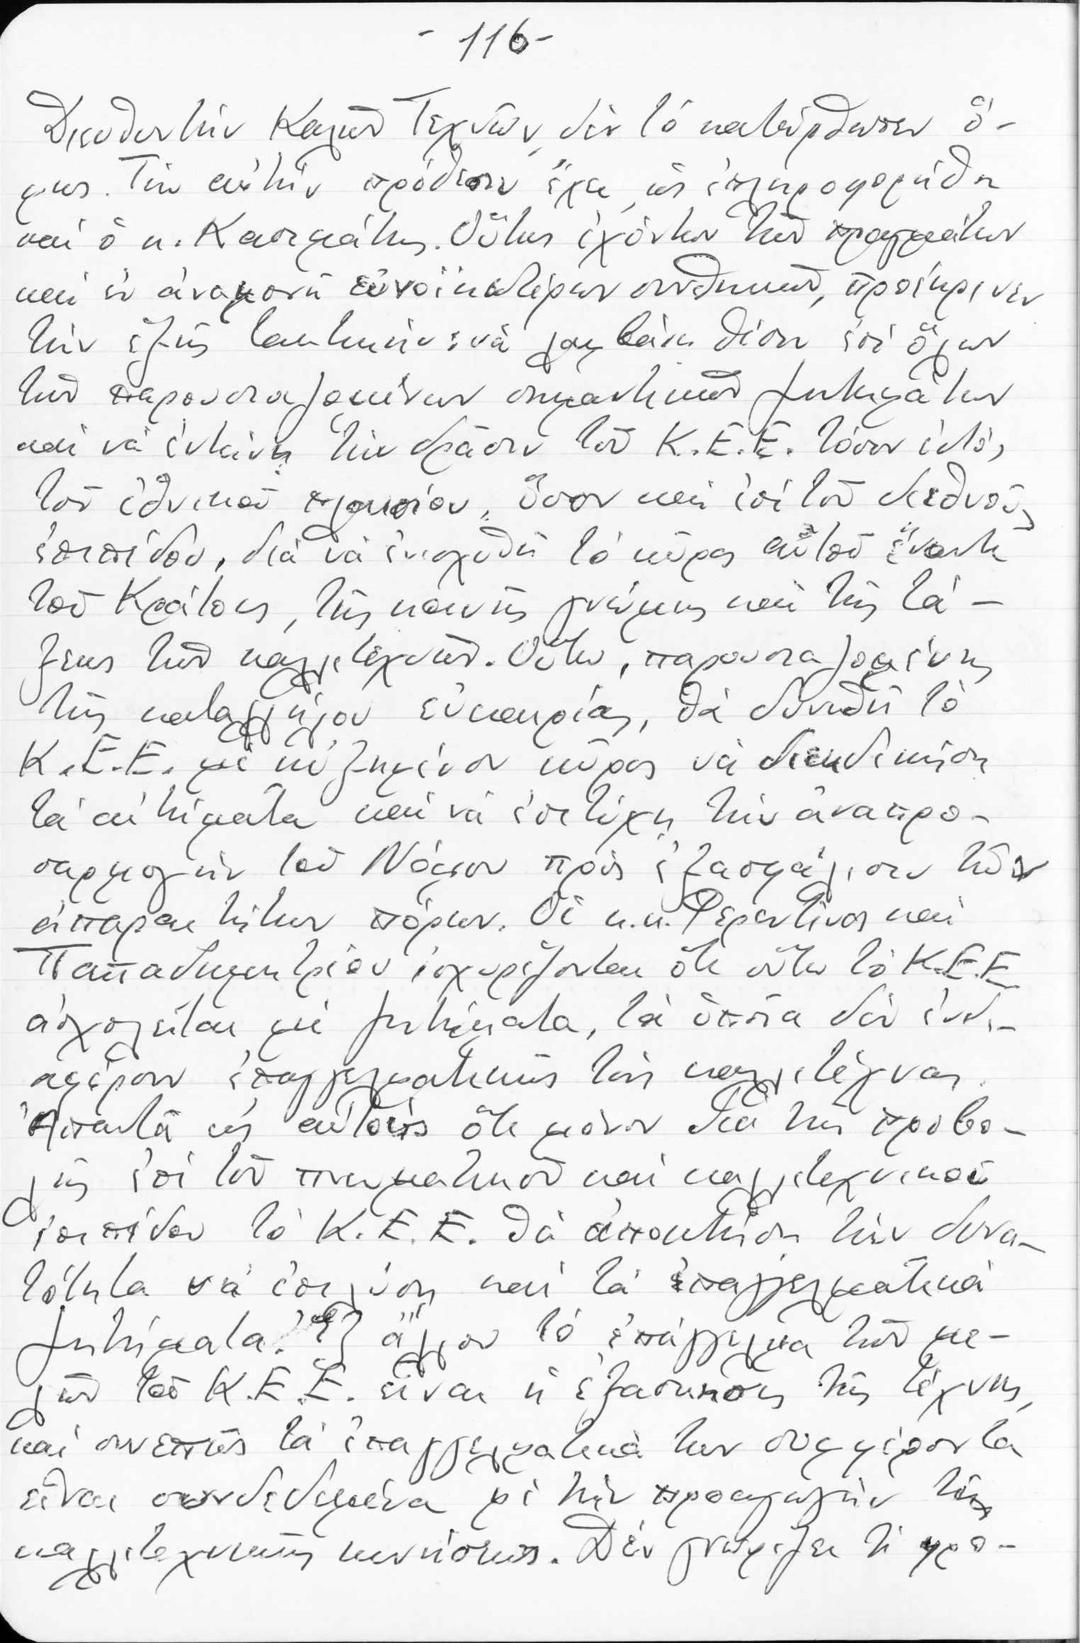 - 116 -
Διευθυντὴν Καλῶν Τεχνῶν, δὲν τὸ κατώρθωσεν ὅ-
μως. Τὴν αὐτὴν πρόθεσιν ἔχει, ὡς ἐπληροφορήθη
καὶ ὁ κ. Κασιμάτης. Οὕτως ἐχόντων τῶν πραγμάτων
καὶ ἐν ἀναμονῇ εὐνοϊκωτέρων συνθηκῶν, προέκρινεν
τὴν ἑξῆς τακτικήν: νὰ λαμβάνῃ θέσιν ἐπὶ ὅλων
τῶν παρουσιαζομένων σημαντικῶν ζητημάτων
καὶ νὰ ἐντείνῃ τὴν δρᾶσιν τοῦ Κ.Ε.Ε. τόσον ἐντὸς
τοῦ ἐθνικοῦ πλαισίου, ὅσον καὶ ἐπὶ τοῦ διεθνοῦς
ἐπιπέδου, διὰ νὰ ἐνισχυθῇ τὸ κῦρος αὐτοῦ ἔναντι
τοῦ Κράτους, τῆς κοινῆς γνώμης καὶ τῆς τά-
ξεως τῶν καλλιτεχνῶν. Οὕτω, παρουσιαζομένης
τῆς καταλλήλου εὐκαιρίας, θὰ δυνηθῇ τὸ
Κ.Ε.Ε. μὲ ηὐξημένον κῦρος νὰ διεκδικήσῃ
τὰ αἰτήματα καὶ νὰ ἐπιτύχῃ τὴν ἀναπρο-
σαρμογὴν τοῦ Νόμου πρὸς ἐξασφάλισιν τῶν
ἀπαραιτήτων πόρων. Οἱ κ.κ. Φερεντῖνος καὶ
Παπαδημητρίου ἰσχυρίζονται ὅτι οὕτω τὸ Κ.Ε.Ε.
ἀσχολεῖται μὲ ζητήματα, τὰ ὁποῖα δὲν ἐνδι-
αφέρουν ἐπαγγελματικῶς τοὺς καλλιτέχνας.
Ἀπαντᾶ εἰς αὐτοὺς ὅτι μόνον διὰ τῆς προβο-
λῆς ἐπὶ τοῦ πνευματικοῦ καὶ καλλιτεχνικοῦ
ἐπιπέδου τὸ Κ.Ε.Ε. θὰ ἀποκτήσῃ τὴν δυνα-
τότητα νὰ ἐπιλύσῃ καὶ τὰ ἐπαγγελματικὰ
ζητήματα. Ἐξ ἄλλου τὸ ἐπάγγελμα τῶν με-
λῶν τοῦ Κ.Ε.Ε. εἶναι ἡ ἐξάσκησις τῆς τέχνης,
καὶ συνεπῶς τὰ ἐπαγγελματικά των συμφέροντα
εἶναι συνδεδεμένα μὲ τὴν προαγωγὴν τῆς
καλλιτεχνικῆς κινήσεως. Δὲν γνωρίζει τί φρο-